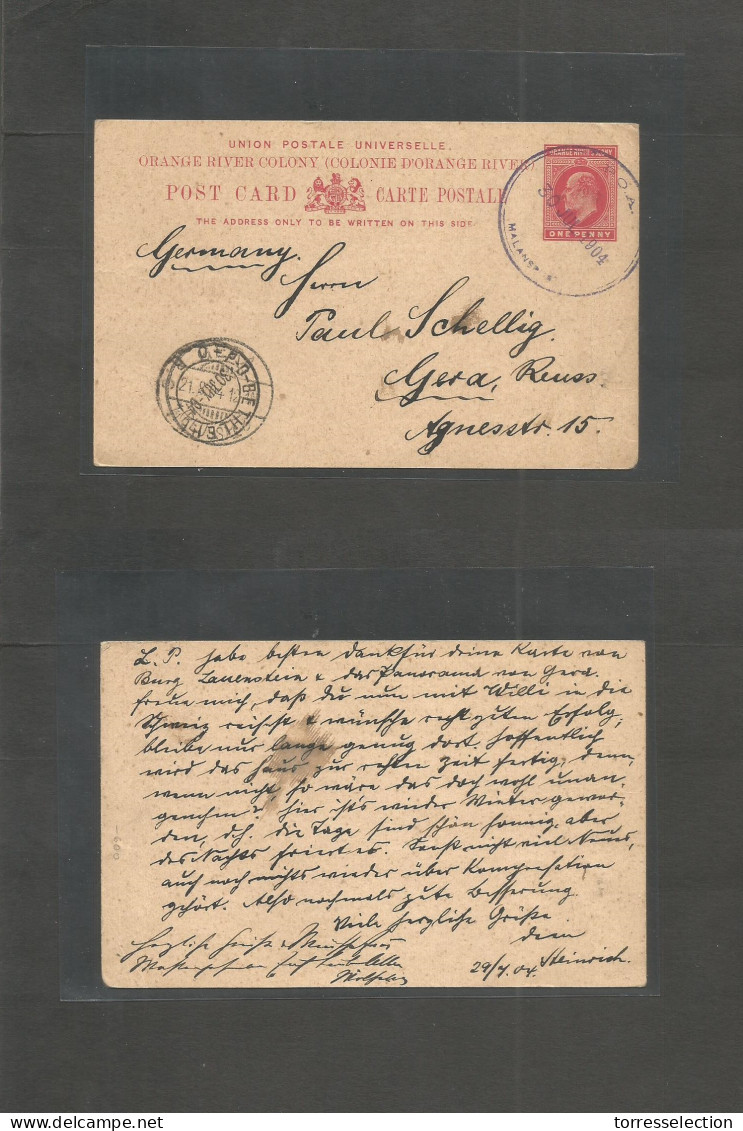 UNION POSTALE UNIVERSELLE.
ORANGE RIVER COLONY (COLONIE D'ORANGE RIVER)
POST CARD CARTE POSTALE
THE ADDRESS ONLY TO BE WRITTEN ON THIS SIDE.
ORANGE RIVER COLONY
ONE PENNY
1904
Germany.
Herrn
Paul Schellig.
Gera, Reuss.
Agnesstr. 15.
L. P. habe besten Dank für deine Karte von
Burg Lauenstein & das Panorama von Gera.
freue mich, daß du nun mit Willi in die
Schweiz reisest & wünsche recht guten Erfolg,
bleibe nur lange genug dort. Hoffentlich
wird das Haus zur rechten Zeit fertig, denn,
wenn nicht so wäre das doch wohl unan-
genehm? Hier ist's wieder Winter gewor-
den, d.h. die Tage sind schön sonnig, aber
des Nachts friert es. Sonst nicht viel Neues,
auch noch nichts wieder über Kompensation
gehört. Also nochmals gute Besserung
Viele herzliche Grüße
dein
29/7.04. Heinrich.
Herzliche
torresselection